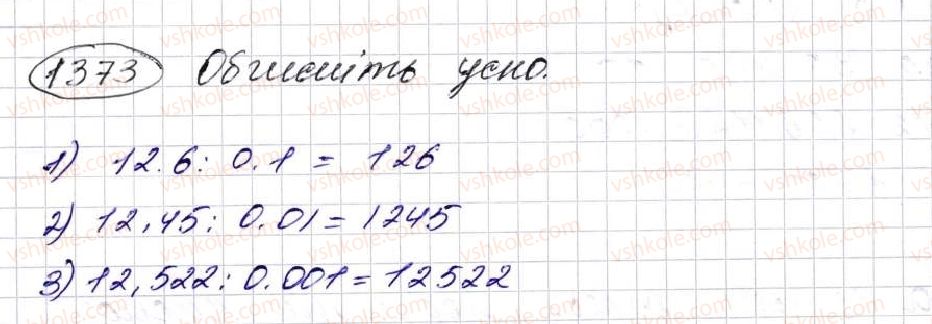 1373 Обчисліть усно.
1) 12.6 : 0.1 = 126
2) 12,45 : 0.01 = 1245
3) 12,522 : 0.001 = 12522
vshkole.com